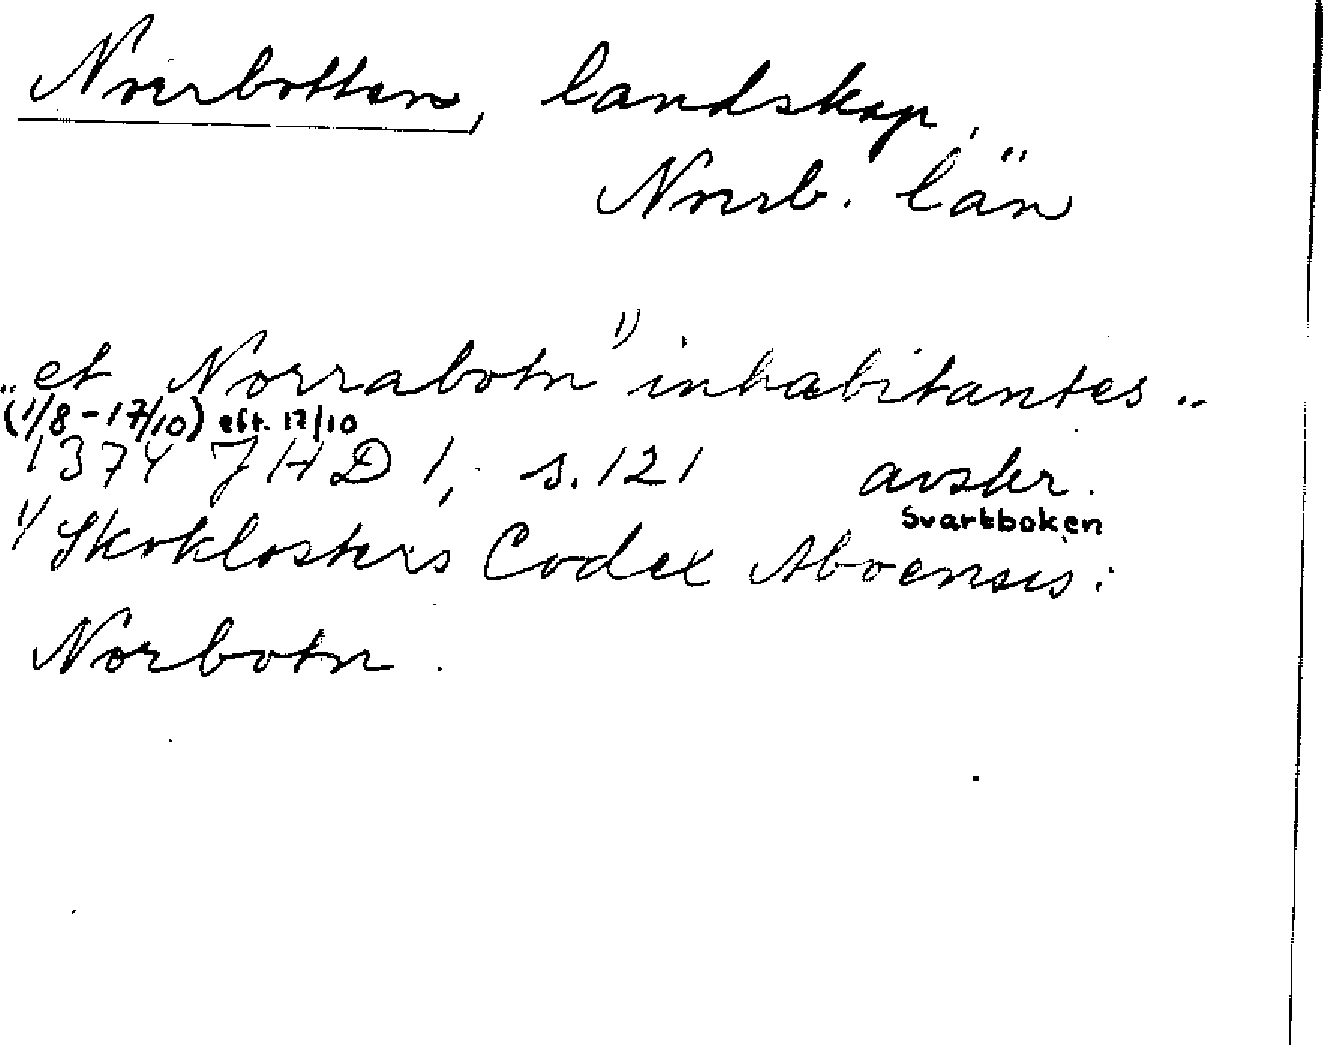 Norrbotten, landskap,
Norrb. län
.. et Norrabotn 1) inhabitantes ..
(1/8-17/10) eft. 17/10
1374 JHD 1, s. 121 avskr.
Svartboken
1) Skoklosters Codex Aboensis:
Norbotn.